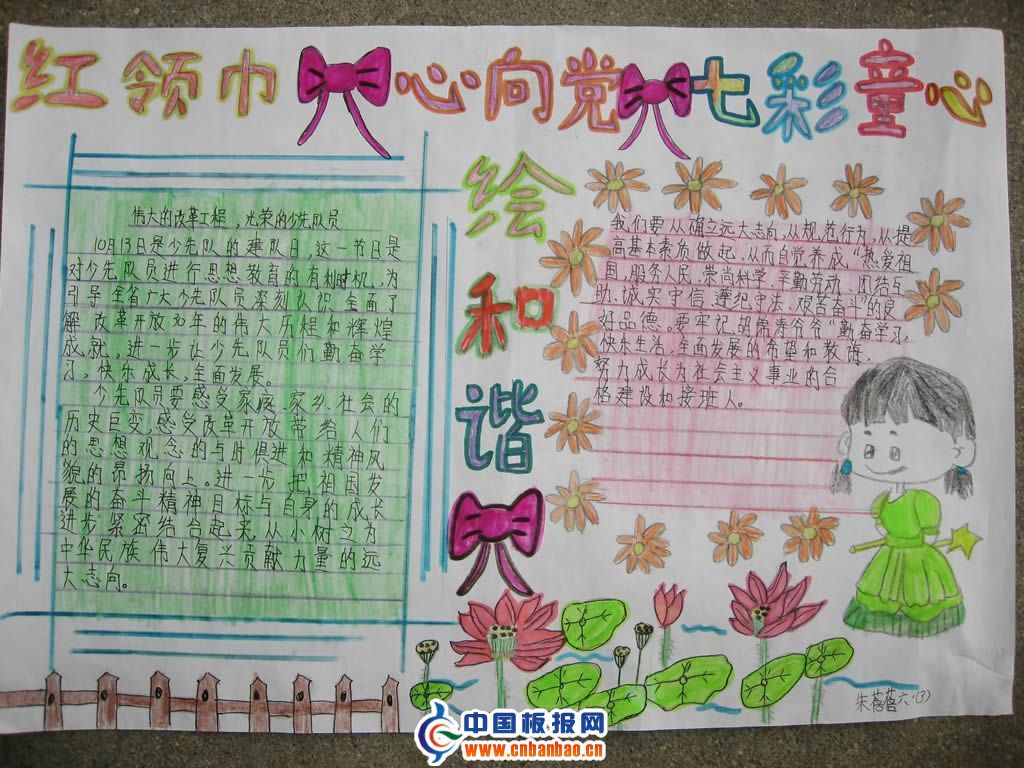 红领巾心向党七彩童心
绘和谐
伟大的改革工程，光荣的少先队员
10月13日是少先队的建队日，这一节日是
对少先队员进行思想教育的有利时机，为
引导全省广大少先队员深刻认识、全面了
解改革开放30年的伟大历程和辉煌
成就，进一步让少先队员们勤奋学
习，快乐成长，全面发展。
少先队员要感受家庭、家乡、社会的
历史巨变，感受改革开放带给人们
的思想观念的与时俱进和精神风
貌的昂扬向上。进一步把祖国发
展的奋斗精神目标与自身的成长
进步紧密结合起来，从小树立为
中华民族伟大复兴贡献力量的远
大志向。
我们要从确立远大志向，从规范行为，从提
高基本素质做起，从而自觉养成“热爱祖
国，服务人民，崇尚科学，辛勤劳动、团结互
助、诚实守信、遵纪守法、艰苦奋斗”的良
好品德。要牢记胡锦涛爷爷“勤奋学习，
快乐生活，全面发展的希望和教诲，
努力成长为社会主义事业的合
格建设和接班人。
朱蓓蓓六·(3)
中国板报网
www.cnbanbao.cn